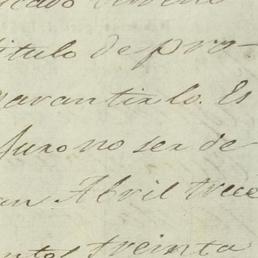 titulo de pro-
garantirlo. Es
juro no ser de
an Abril trece
treinta